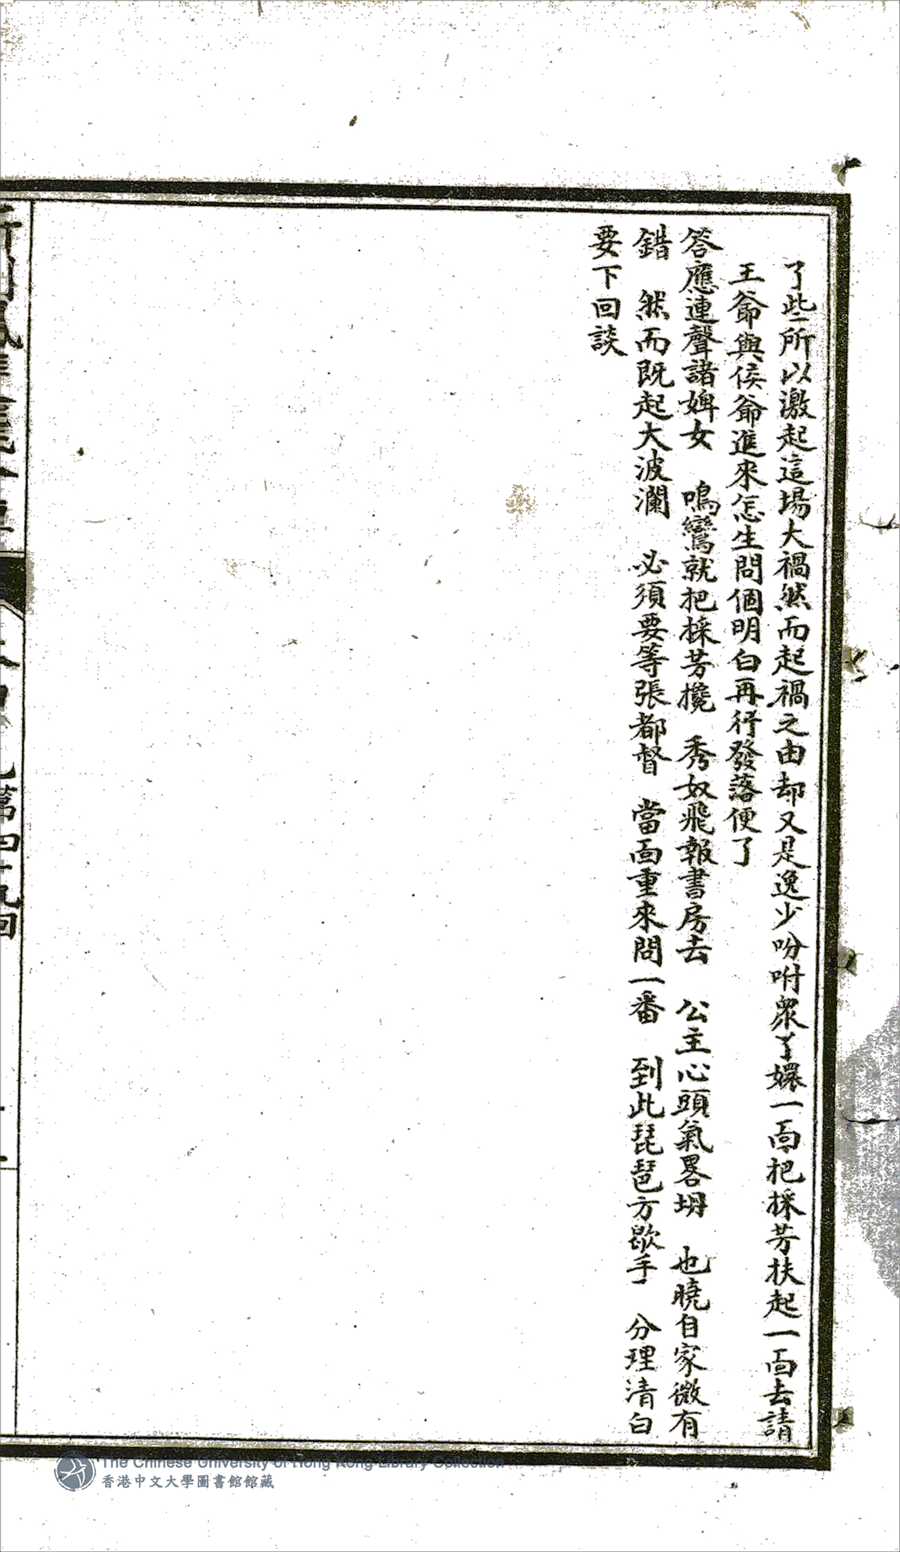 了些所以激起這場大禍然而起禍之由却又是逸少吩咐衆丫嬛一面把採芳扶起一面去請
王爺與侯爺進來怎生問個明白再行發落便了
答應連聲諸婢女　鳴鸞就把採芳攙　秀奴飛報書房去　公主心頭氣畧坍　也曉自家微有
錯　然而既起大波瀾　必須要等張都督　當面重來問一番　到此琵琶方歇手　分理清白
要下回談
第四十九回
The Chinese University of Hong Kong Library Collection
香港中文大學圖書館館藏